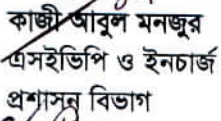 কাজী আবুল মনজুর
এসইভিপি ও ইনচার্জ
প্রশাসন বিভাগ